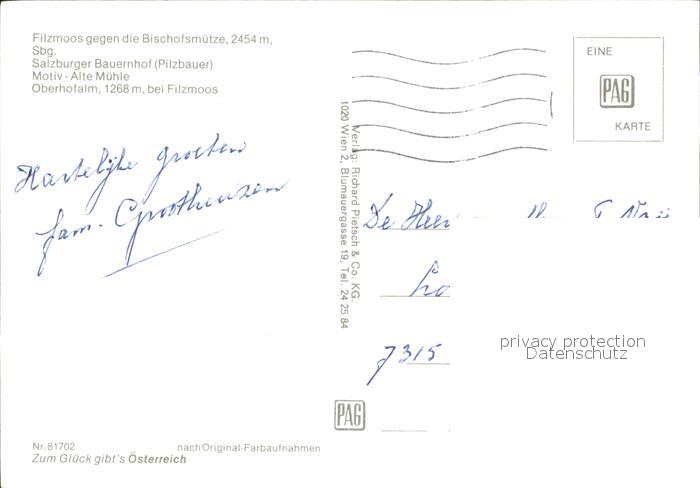 Filzmoos gegen die Bischofsmütze, 2454 m,
Sbg.
Salzburger Bauernhof (Pilzbauer)
Motiv - Alte Mühle
Oberhofalm, 1268 m, bei Filzmoos
Hartelijke groeten
fam. Groothuizen
Verlag: Richard Pietsch & Co. KG.
1020 Wien 2, Blumauergasse 19, Tel. 24 25 84
EINE
PAG
KARTE
De Heer
7315
privacy protection
Datenschutz
PAG
Nr. 81702 nach Original-Farbaufnahmen
Zum Glück gibt's Österreich